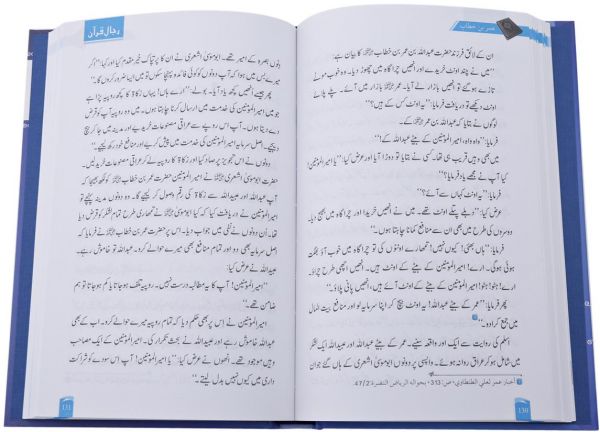 عمر بن خطاب
ان کے لائق فرزند حضرت عبداللہ بن عمر بن خطاب رضی اللہ عنہ کا بیان ہے:
”میں نے چند اونٹ خریدے اور انھیں چراگاہ میں چھوڑ دیا۔ وہ خوب موٹے
تازے ہو گئے تو میں انھیں بازار لے آیا۔ عمر رضی اللہ عنہ بازار میں آئے۔ پلے پلائے
اونٹ دیکھے تو دریافت فرمایا: ”یہ اونٹ کس کے ہیں؟“
لوگوں نے بتایا کہ عبداللہ بن عمر رضی اللہ عنہ کے۔
فرمایا: ”واہ واہ، امیرالمؤمنین کے بیٹے عبداللہ کے!“
میں بھی وہیں قریب ہی تھا۔ کسی نے بتایا تو دوڑا آیا اور عرض کیا: ”یا امیرالمؤمنین!
کیا آپ نے مجھے یاد فرمایا؟“
فرمایا: ”یہ اونٹ کہاں سے آئے؟“
عرض کیا: ”دبلے پتلے اونٹ تھے۔ میں نے انھیں خریدا اور چراگاہ میں بھیج دیا۔
دوسروں کی طرح میں بھی ان سے منافع کمانا چاہتا ہوں۔“
فرمایا: ”ہاں بھئی! کیوں نہیں! تمھارے اونٹوں کی تو چراگاہ میں خوب آؤ بھگت
ہوئی ہوگی۔ ارے! امیرالمؤمنین کے بیٹے کے اونٹ ہیں۔ انھیں اچھی طرح چراؤ۔
ارے! ہٹو! ہٹو! امیرالمؤمنین کے بیٹے کے اونٹ ہیں، انھیں پانی پلاؤ۔“
پھر فرمایا: ”عمر کے بیٹے عبداللہ! یہ اونٹ بیچ کر اپنا سرمایہ لو اور منافع بیت المال
میں جمع کرا دو۔“
اسلم کی روایت سے ایک اور واقعہ سنیے۔ عمر کے بیٹے عبداللہ اور عبیداللہ ایک لشکر
میں شامل ہو کر عراق روانہ ہوئے۔ واپسی پر دونوں ابوموسیٰ اشعری کے ہاں گئے جو ان
أخبار عمر لعلي الطنطاوي، ص: 313، بحوالہ الریاض النضرة: 47/2.
130
رجال قرآن
دنوں بصرہ کے امیر تھے۔ ابوموسیٰ اشعری نے ان کا پرتپاک خیر مقدم کیا اور کہا: ”اگر
میرے بس میں ہوا کہ آپ دونوں کو کوئی فائدہ پہنچا سکوں تو میں ایسا ضرور کروں گا۔“
پھر جیسے انھیں کچھ یاد آیا۔ بولے: ”ارے ہاں! یہاں زکاۃ کا کچھ روپیہ پڑا ہے
جو میں امیرالمؤمنین کی خدمت میں ارسال کرنا چاہتا ہوں۔ میں وہ روپیہ آپ کو قرض
دے دیتا ہوں۔ آپ اس روپے سے عراقی مصنوعات خریدیے اور مدینہ میں جا کر بیچ
دیجیے۔ اصل سرمایہ امیرالمؤمنین کی خدمت میں پیش کریے اور منافع خود رکھ لیجیے۔“
دونوں نے اس تجویز پر صاد کیا اور زکاۃ کا روپیہ لے کر عراقی مصنوعات خرید لیں۔
حضرت ابوموسیٰ اشعری رضی اللہ عنہ نے امیرالمؤمنین حضرت عمر بن خطاب رضی اللہ عنہ کو لکھ بھیجا کہ
آپ عبداللہ اور عبیداللہ سے زکاۃ کی رقم وصول کر لیجیے گا۔ وہ دونوں مدینہ پہنچے تو
امیرالمؤمنین نے دریافت کیا کہ کیا ابوموسیٰ نے تمھاری طرح تمام لشکر کو قرض دیا
تھا۔ اُن دونوں نے نفی میں جواب دیا۔ اس پر حضرت عمر بن خطاب رضی اللہ عنہ نے فرمایا کہ
اصل سرمایہ بھی دو اور تمام منافع بھی میرے حوالے کرو۔ عبداللہ تو خاموش رہے۔
عبیداللہ نے عرض کیا:
”امیرالمؤمنین! آپ کا یہ مطالبہ درست نہیں۔ روپیہ تلف ہو جاتا یا کم ہو جاتا تو ہم
ضامن تھے۔“
امیرالمؤمنین نے اس پر بھی حکم دیا کہ تمام روپیہ میرے حوالے کرو۔ اب کے بھی
عبداللہ خاموش رہے اور عبیداللہ نے بحث تکرار کی۔ امیرالمؤمنین کے ایک مصاحب
وہیں موجود تھے۔ انھوں نے عرض کیا: ”یا امیرالمؤمنین! آپ اس سودے کو شراکت
داری میں کیوں نہیں بدل لیتے۔“
131